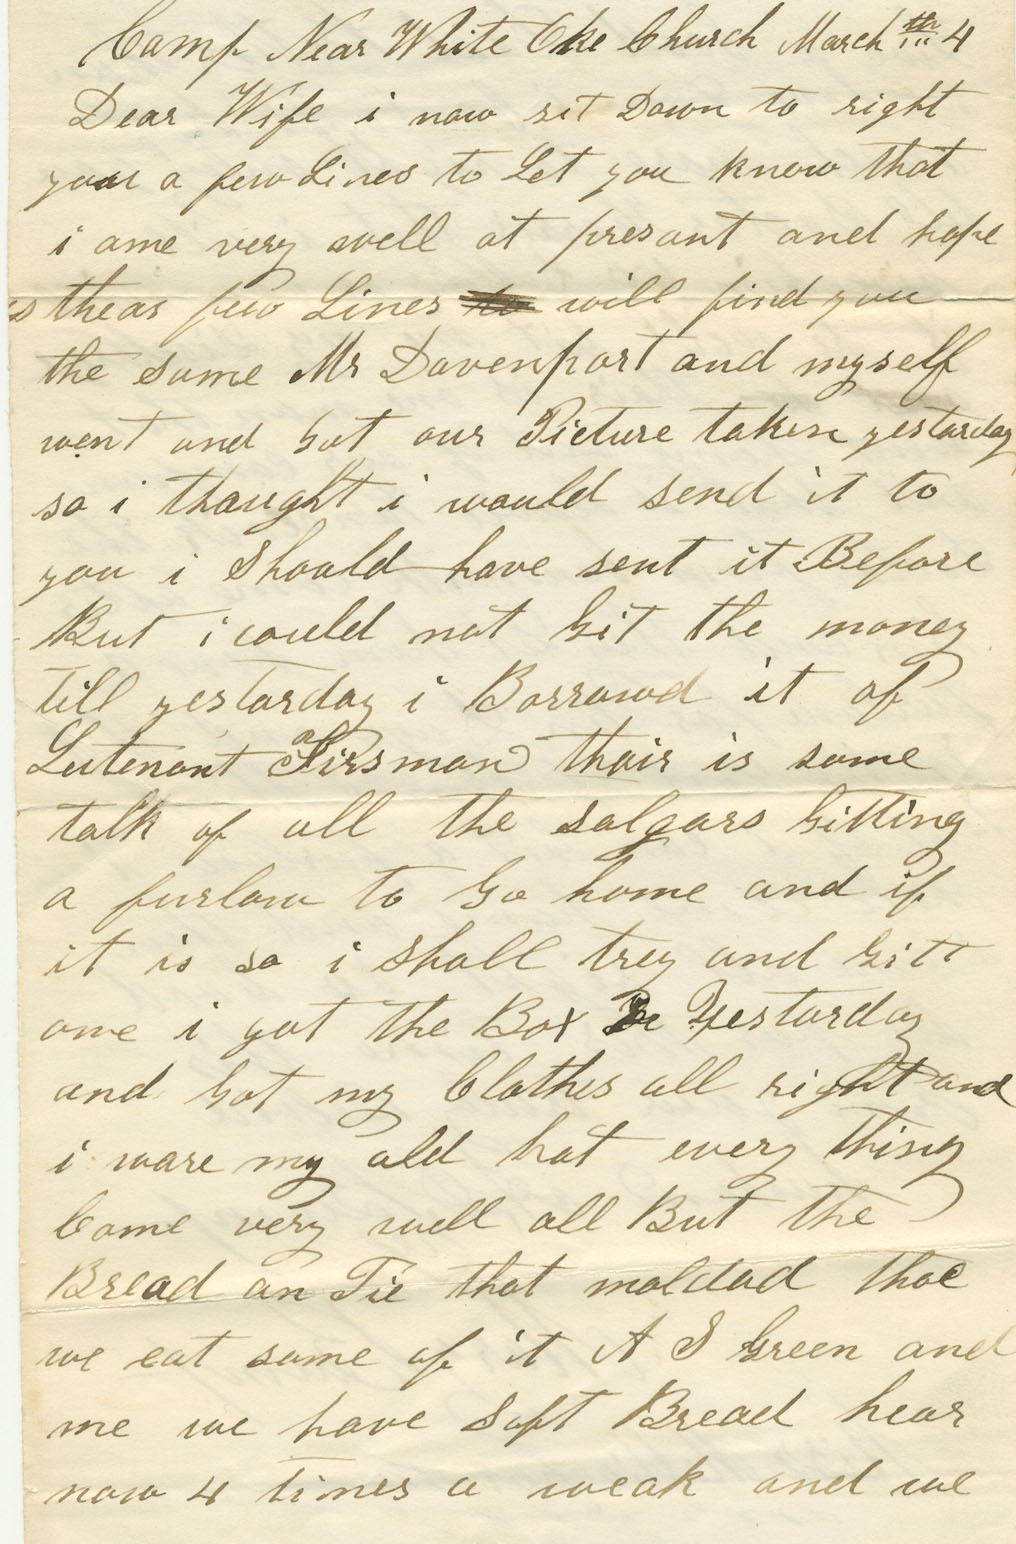 Camp Near White Oke Church March th 4
Dear Wife i now sit Down to right
your a few Lines to Let you know that
i ame very well at presant and hope
theas few Lines will find you
the same Mr Davenport and myself
went and got our Picture taken yestarday
so i thaught i would send it to
you i Should have sent it Before
But i could not git the money
till yestarday i Borrowd it of
Lutenant Hirsman thair is some
talk of all the solgars gitting
a furlow to Go home and if
it is so i shall trey and gitt
one i got the Box Yestarday
and got my Clothes all right and
i ware my old hat every thing
Come very well all But the
Bread an Pie that moldad thoe
we eat some of it A S Green and
me we have Soft Bread hear
now 4 times a weak and we